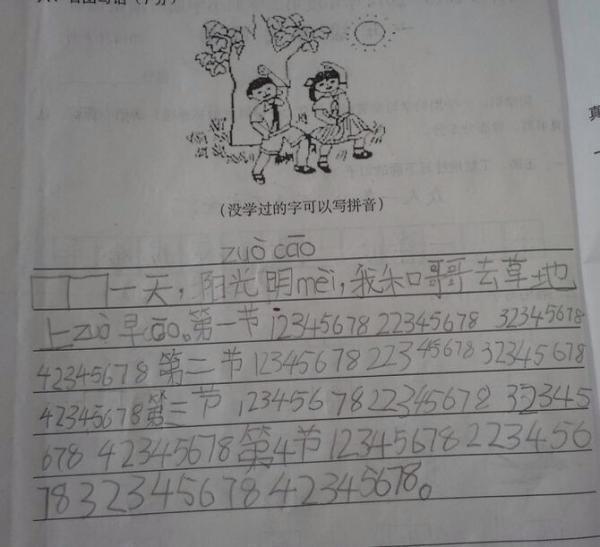 六、看图写话（7分）
（没学过的字可以写拼音）
zuò cāo
一天，阳光明mèi，我和哥哥去草地
上zuò早cāo。第一节12345678 22345678 32345678
42345678第二节12345678 22345678 32345678
42345678第三节12345678 22345678 32345
678 42345678第4节12345678 223456
78 32345678 42345678。
真